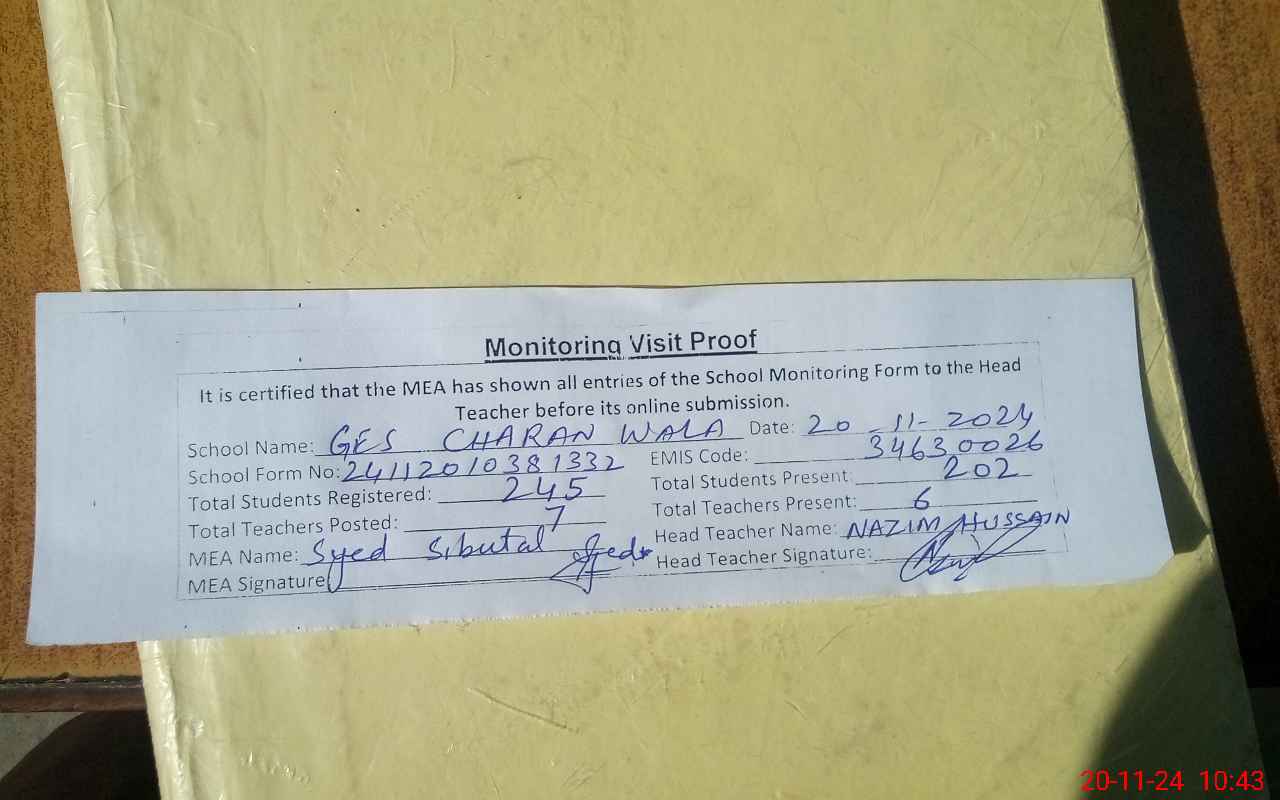 Monitoring Visit Proof
It is certified that the MEA has shown all entries of the School Monitoring Form to the Head
Teacher before its online submission.
School Name: GES CHARAN WALA Date: 20-11-2024
School Form No: 24112010381332 EMIS Code: 34630026
Total Students Registered: 245 Total Students Present: 202
Total Teachers Posted: 7 Total Teachers Present: 6
MEA Name: Syed Sibutal Head Teacher Name: NAZIM HUSSAIN
MEA Signature Head Teacher Signature:
20-11-24 10:43